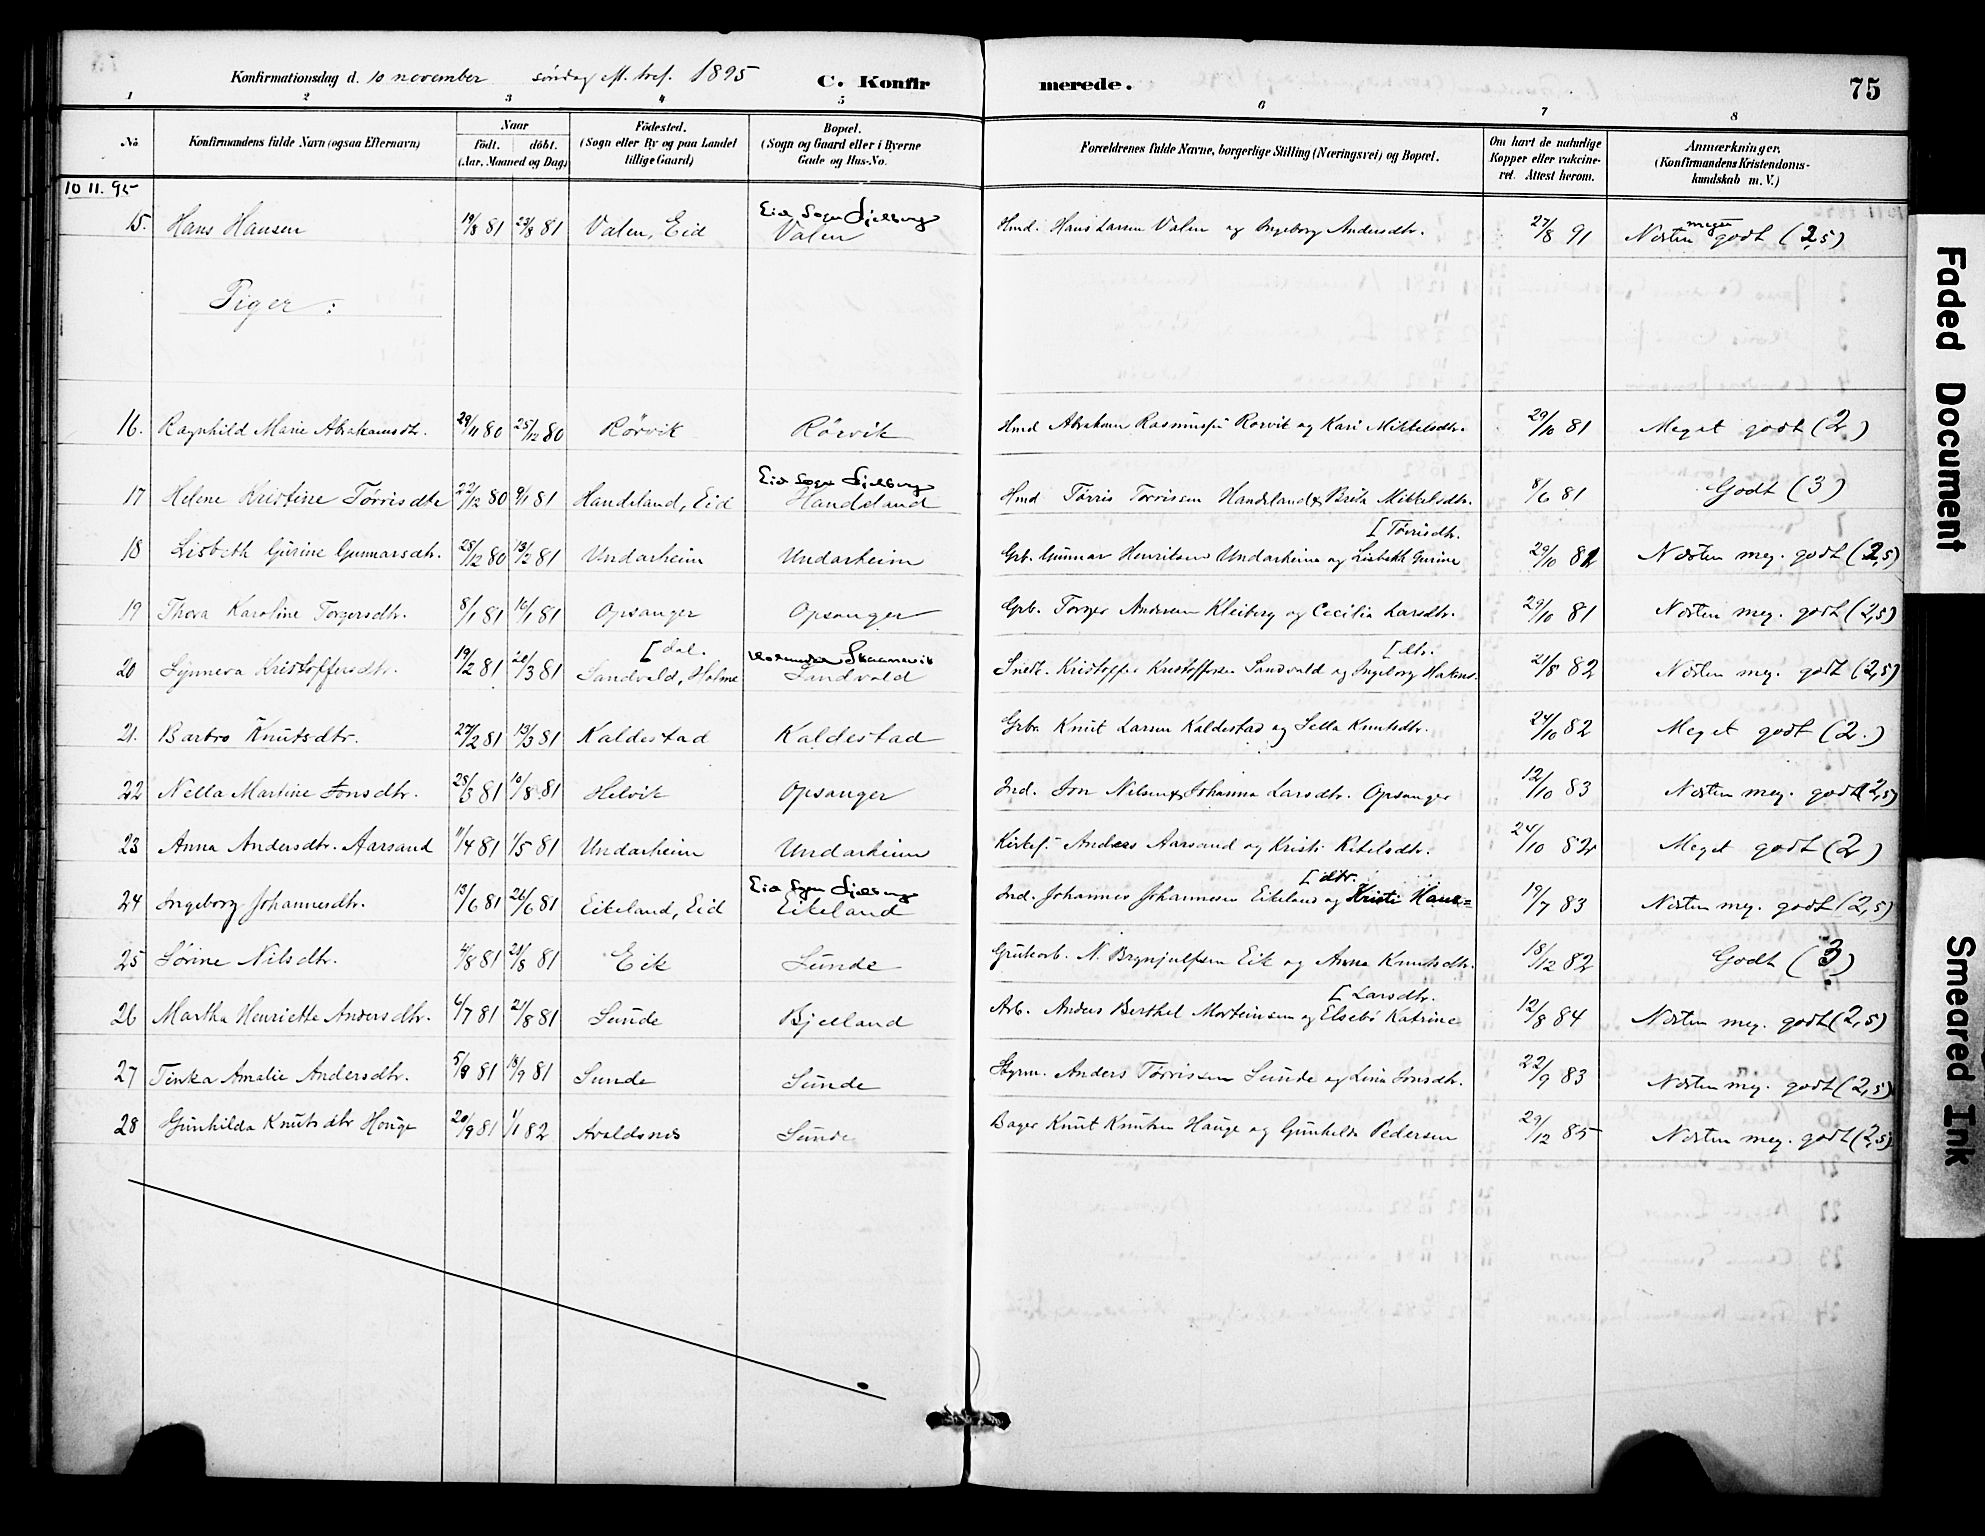 Konfirmationsdag d. 10 november søndag eft. tref. 1895 C. Konfirmerede. 75
1 2 3 4 5 6 7 8
No Konfirmandens fulde Navn (ogsaa Efternavn) Naar födt. döbt. (Aar, Maaned og Dag) Födested. (Sogn eller By og paa Landet tillige Gaard) Bopæl. (Sogn og Gaard eller i Byerne Gade og Hus-No. Forældrenes fulde Navne, borgerlige Stilling (Næringsvei) og Bopæl. Om havt de naturlige Kopper eller vakcineret. Attest herom. Anmærkninger. (Konfirmandens Kristendomskundskab m. V.)
10 11. 95
15. Hans Hansen 19/8 81 28/8 81 Valen, Eid Eid Sogn Fjelberg Valen Hmd. Hans Larsen Valen og Ingeborg Andersdtr. 27/8 91 Nesten meget godt (2,5)
Piger:
16. Ragnhild Marie Abrahamsdtr. 29/11 80 25/12 80 Rörvik Rörvik Hmd Abraham Rasmussen Rörvik og Kari Mikkelsdtr. 29/10 81 Meget godt (2)
17 Helene Kristine Tørrisdtr 22/12 80 9/1 81 Handeland, Eid Eid Sogn Fjelberg Handeland Hmd Tørris Torrisen Handeland & Brita Mikkelsdtr. 8/6 81 Godt (3)
18 Lisbeth Gurine Gunnarsdtr. 28/12 80 13/2 81 Undarheim Undarheim Grb. Gunnar Henriksen Undarheim og Lisbeth Gurine [Tørrisdtr. 29/10 82 Nesten meg. godt (2,5)
19 Thora Karoline Torgersdtr. 8/1 81 16/1 81 Opsanger Opsanger Grb. Torger Andersen Kleiberg og Cecilia Larsdtr. 29/10 81 Nesten meg. godt (2,5)
20 Synneva Kristoffersdtr. 19/2 81 20/3 81 Sandvald, Holme[dal. Holmedal Skaanevik Sandvald Snedk. Kristoffer Kristoffersen Sandvald og Ingeborg Hakons[dtr. 21/8 82 Nesten meg. godt (2,5)
21. Barbro Knutsdtr. 27/2 81 13/3 81 Kaldestad Kaldestad Grbr Knut Larsen Kaldestad og Sella Knutsdtr. 24/10 82 Meget godt (2.)
22 Nella Martine Jonsdtr. 28/3 81 10/8 81 Helvik Opsanger Ind. Jon Nilsen & Johanna Larsdtr. Opsanger 12/10 83 Nesten meg. godt (2,5)
23 Anna Andersdtr. Aarsand 11/4 81 1/5 81 Undarheim Undarheim Kirkes. Anders Aarsand og Kristi Ketelsdtr. 24/10 82 Meget godt (2)
24 Ingeborg Johannesdtr. 13/6 81 26/6 81 Eikeland, Eid Eid Sogn Fjelberg Eikeland Ind. Johannes Johannessen Eikeland og Kristi Hans=[dtr. 19/7 83 Nesten meg. godt (2,5)
25 Sørine Nilsdtr. 4/8 81 21/8 81 Eik Sunde Grubearb. N. Brynjulfsen Eik og Anna Knutsdtr. 18/12 82 Godt (3)
26 Martha Henriette Andersdtr. 4/7 81 21/8 81 Sunde Bjelland Arb. Anders Berthel Morteinsen og Elsebé Katrine [Larsdtr. 12/8 84 Nesten meg. godt (2,5)
27 Tinka Amalie Andersdtr. 5/8 81 18/9 81 Sunde Sunde Styrm. Anders Tørrissen Sunde og Lina Jonsdtr. 22/9 83 Nesten meg. godt (2,5)
28 Gunhilda Knutsdtr Houge 20/9 81 1/1 82 Avaldsnes Sunde Bager Knut Knutsen Hauge og Gunhilda Pedersen 29/12 85 Nesten meg. godt (2,5)
Faded Document
Smeared Ink